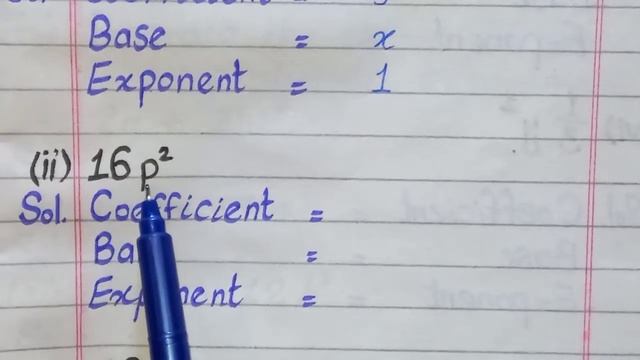 Base = x
Exponent = 1
(ii) 16p²
Sol. Coefficient =
Ba =
Exponent =